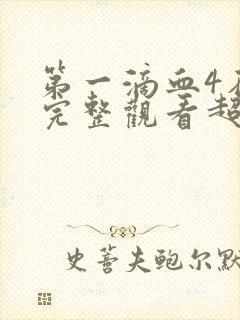 第一滴血4
完整觀看超
史蒈夫鲍尔默